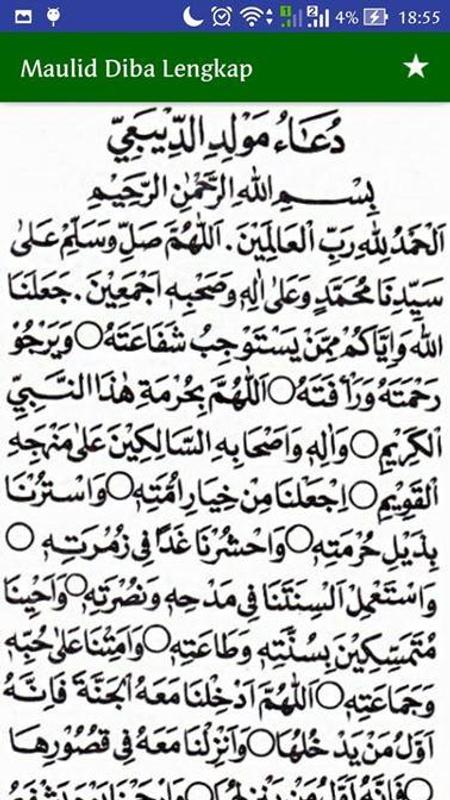 4% 18:55
Maulid Diba Lengkap
دُعَاءُ مَوْلِدِ الدِّيبَعِيّ
بِسْمِ اللهِ الرَّحْمٰنِ الرَّحِيْمِ
اَلْحَمْدُ لِلهِ رَبِّ الْعَالَمِيْنَ. اَللّٰهُمَّ صَلِّ وَسَلِّمْ عَلىٰ
سَيِّدِنَا مُحَمَّدٍ وَعَلىٰ اٰلِهٖ وَصَحْبِهٖ اَجْمَعِيْنَ. جَعَلَنَا
اللهُ وَاِيَّاكُمْ مِمَّنْ يَسْتَوْجِبُ شَفَاعَتَهُ ○ وَيَرْجُوْ
رَحْمَتَهُ وَرَأْفَتَهُ ○ اَللّٰهُمَّ بِحُرْمَةِ هٰذَا النَّبِيِّ
الْكَرِيْمِ ○ وَاٰلِهٖ وَاَصْحَابِهِ السَّالِكِيْنَ عَلىٰ مَنْهَجِهِ
الْقَوِيْمِ ○ اِجْعَلْنَا مِنْ خِيَارِ اُمَّتِهٖ ○ وَاسْتُرْنَا
بِذَيْلِ حُرْمَتِهٖ ○ وَاحْشُرْنَا غَدًا فِى زُمْرَتِهٖ ○
وَاسْتَعْمِلْ اَلْسِنَتَنَا فِى مَدْحِهٖ وَنُصْرَتِهٖ ○ وَاَحْيِنَا
مُتَمَسِّكِيْنَ بِسُنَّتِهٖ وَطَاعَتِهٖ ○ وَاَمِتْنَا عَلىٰ حُبِّهٖ
وَجَمَاعَتِهٖ ○ اَللّٰهُمَّ اَدْخِلْنَا مَعَهُ الْجَنَّةَ فَاِنَّهُ
اَوَّلُ مَنْ يَدْخُلُهَا ○ وَاَنْزِلْنَا مَعَهُ فِى قُصُوْرِهَا